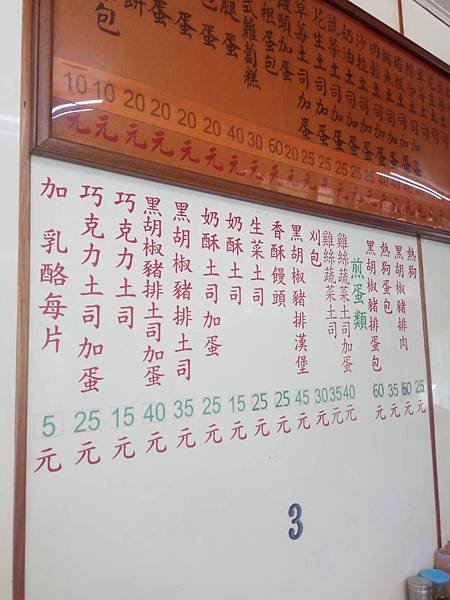 肉鬆土司加蛋
沙拉土司加蛋
奶油土司加蛋
花生土司加蛋
草莓土司加蛋
饅頭加蛋
根蛋包
蘿蔔糕
腿蛋
蛋
蛋
餅
包
10 10 20 20 20 20 40 30 60 20 25 25 25 25
元 元 元 元 元 元 元 元 元 元 元 元 元 元
熱狗 25元
黑胡椒豬排肉 元
熱狗蛋包 35元
黑胡椒豬排蛋包 60元
煎蛋類
雞絲蔬菜土司加蛋 40元
雞絲蔬菜土司 35元
刈包 30元
黑胡椒豬排漢堡 45元
香酥饅頭 25元
生菜土司 25元
奶酥土司 15元
奶酥土司加蛋 25元
黑胡椒豬排土司 35元
黑胡椒豬排土司加蛋 40元
巧克力土司 15元
巧克力土司加蛋 25元
加 乳酪每片 5元
3